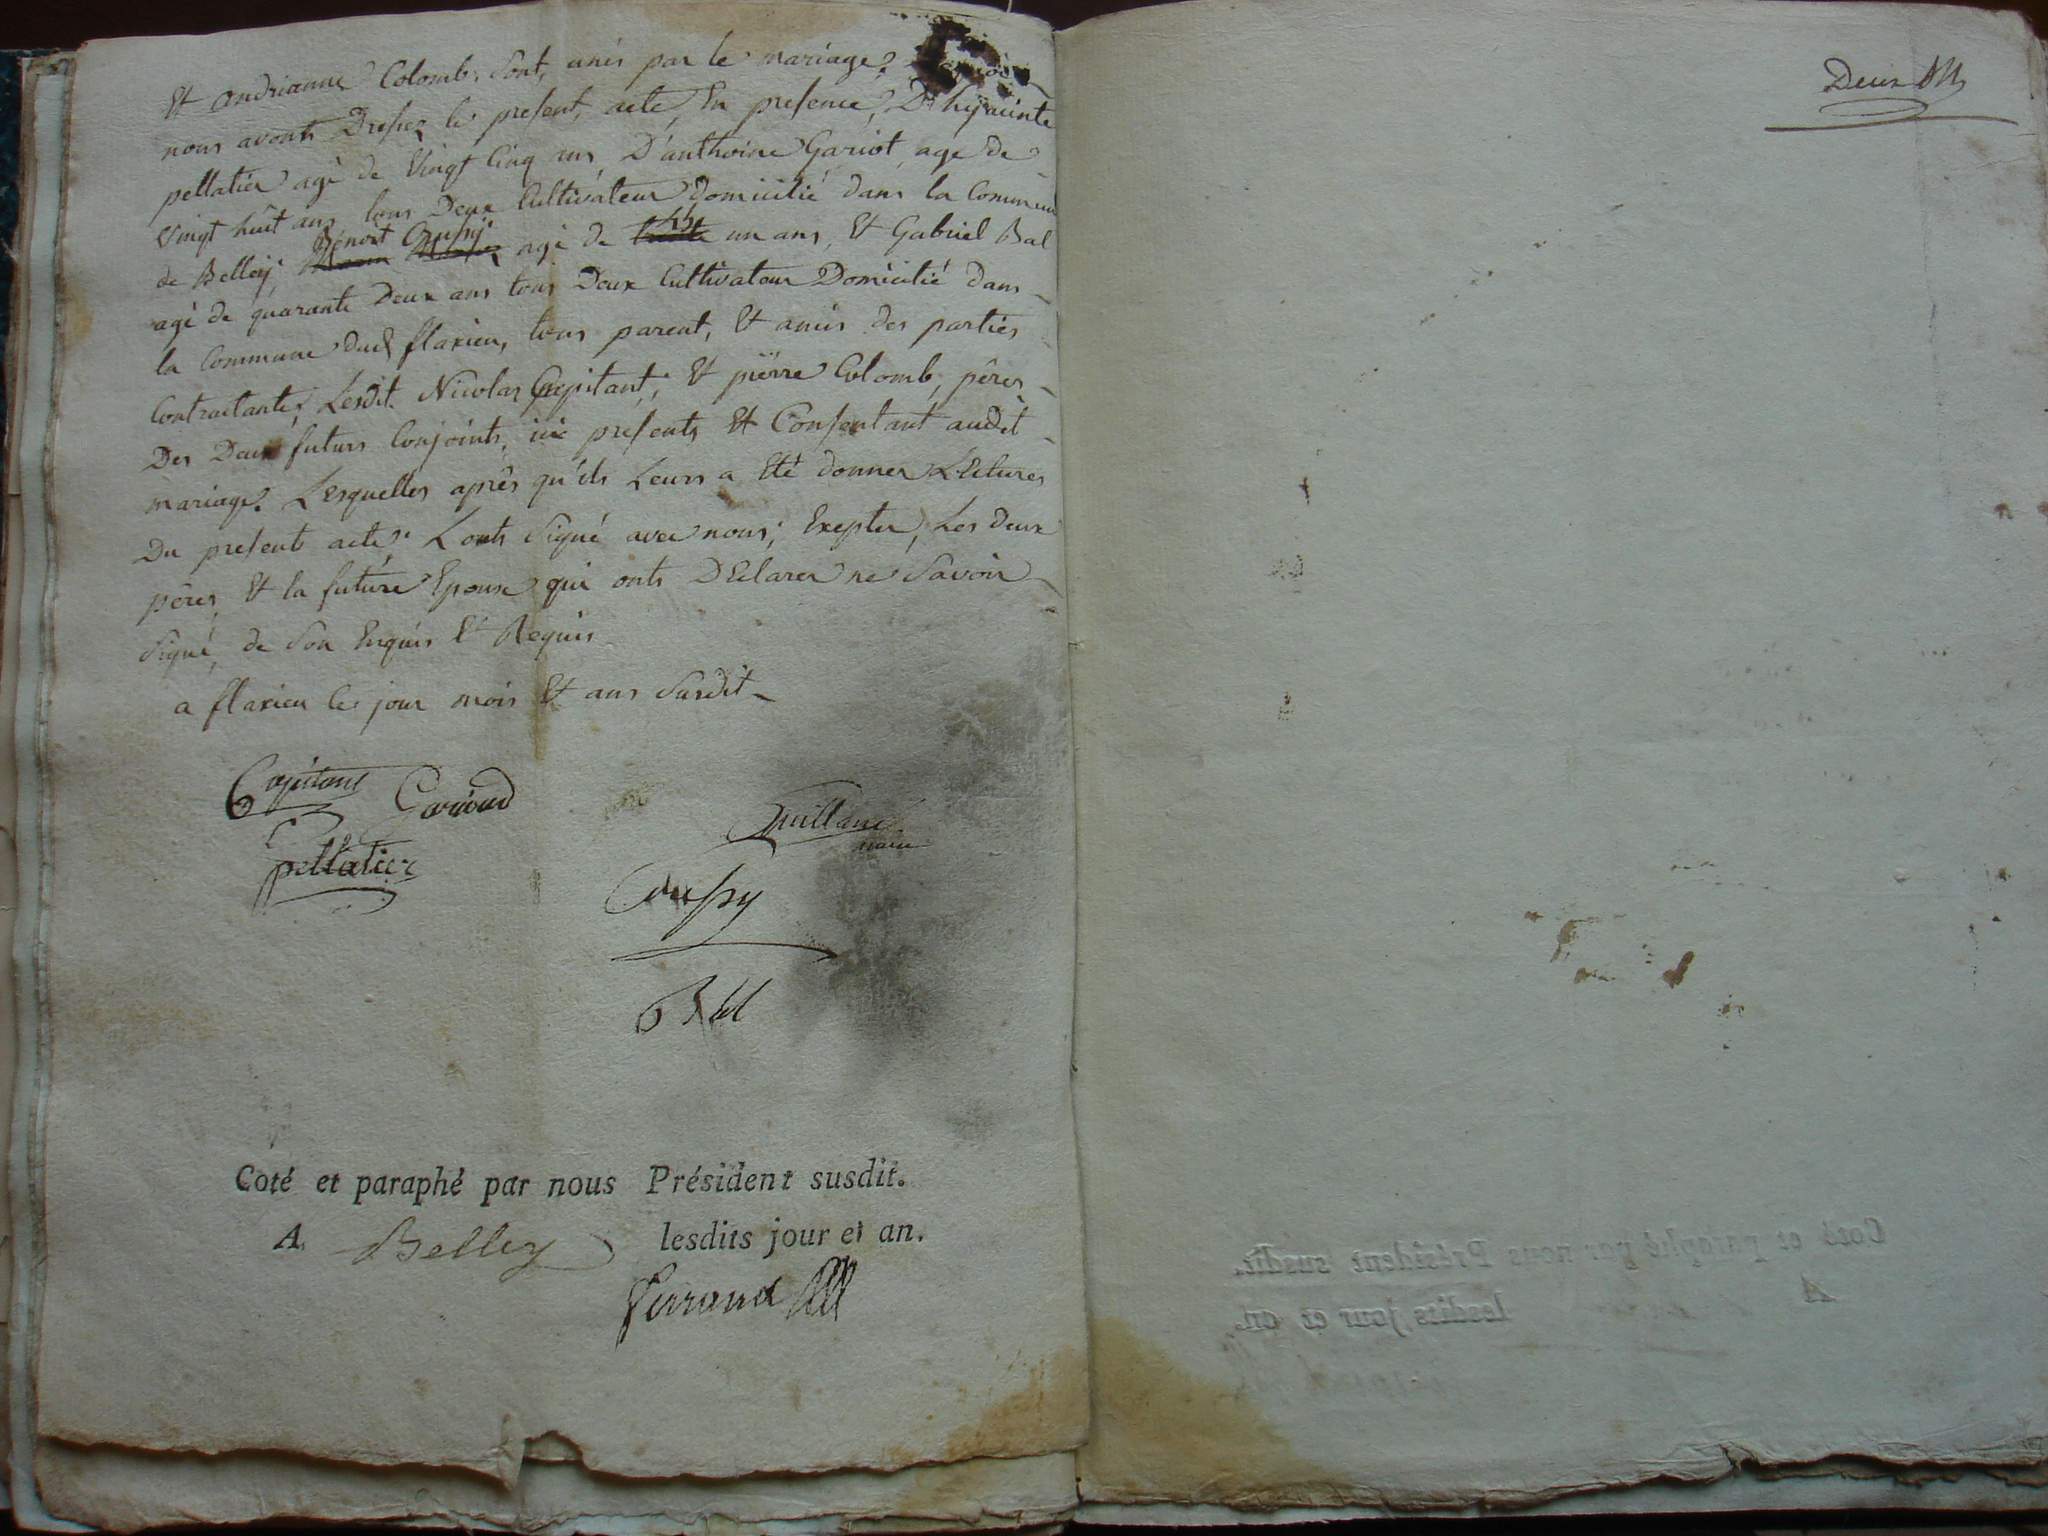 Et andrianne Colomb, Sont, unis par le mariage.
nous avonts Dressez le present, acte, En presence, Dhyacinte
pellatier agé de Vingt Cinq ans D'anthoine Gariot, age de
Vingt huit ans tous Deux Cultivateur domicilié dans la Commune
de Belley, Bénoit Dupuy agé de un ans, Et Gabriel Bal
agé de quarante Deux ans tous Deux Cultivateur Domicilié Dans
la Commune dud flaxieu, tous parent, Et amis des parties
Contractante, Lesdit Nicolas Capitant, Et pierre Colomb, pêres
Des Deux futurs Conjoints, ici presents Et Consentant audit
mariage. Lesquelles après qu'ils Leurs a Eté donner Lectures
Du presents acte. L'onts Signé avec nous, Excepter, Les deux
pêres, Et la future Epouse qui onts DEclarer ne Savoir
Signé, de Son Enquis Et Requis
a flaxieu le jour mois Et ans Susdit
Capitant Gariod
pellatier
maire
Bal
Coté et paraphé par nous Président susdit.
A Belley lesdits jour et an.
Deux